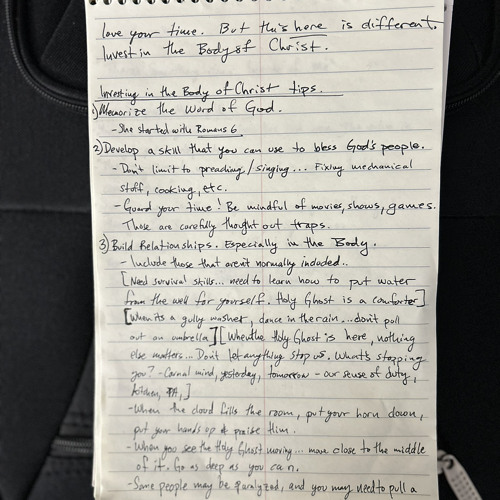 love your time. But this here is different.
Invest in the Body of Christ.
Investing in the Body of Christ tips.
1) Memorize the Word of God.
- She started with Romans 6
2) Develop a skill that you can use to bless God's people.
- Don't limit to preaching/singing... Fixing mechanical
stuff, cooking, etc.
- Guard your time! Be mindful of movies, shows, games.
Those are carefully thought out traps.
3) Build Relationships. Especially in the Body.
- Include those that aren't normally included..
[Need survival skills... need to learn how to put water
from the well for yourself. Holy Ghost is a comforter]
[When its a gully washer, dance in the rain...don't pull
out an umbrella] [When the Holy Ghost is here, nothing
else matters... Don't let anything stop us. What's stopping
you? - Carnal mind, yesterday, tomorrow - our sense of duty,
kitchen, PA,]
- When the cloud fills the room, put your horn down,
put your hands up & praise Him.
- When you see the Holy Ghost moving... move close to the middle
of it. Go as deep as you can.
- Some people may be paralyzed, and you may need to pull a